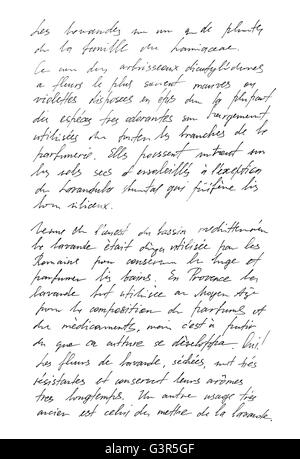 Les lavandes sont un genre de plantes
de la famille des Lamiaceae.
Ce sont des arbrisseaux dicotylédones
à fleurs le plus souvent mauves ou
violettes disposées en épis dont la plupart
des espèces très odorantes sont largement
utilisées dans toutes les branches de la
parfumerie. Elles poussent surtout sur
les sols secs et ensoleillés à l'exception
de Lavandula qui préfère les
sols siliceux.
de l'ouest du bassin méditerranéen
la lavande était déjà utilisée par les
Romains pour conserver le linge et
parfumer les bains. En Provence la
lavande fut utilisée au Moyen Age
pour la composition de parfums et
de médicaments, mais c'est à partir
du que sa culture se développa.
Les fleurs de lavande, séchées, sont très
résistantes et conservent leurs arômes
très longtemps. Un autre usage très
ancien est celui de mettre de la lavande
alamy
Image ID: G3R5GF
www.alamy.com